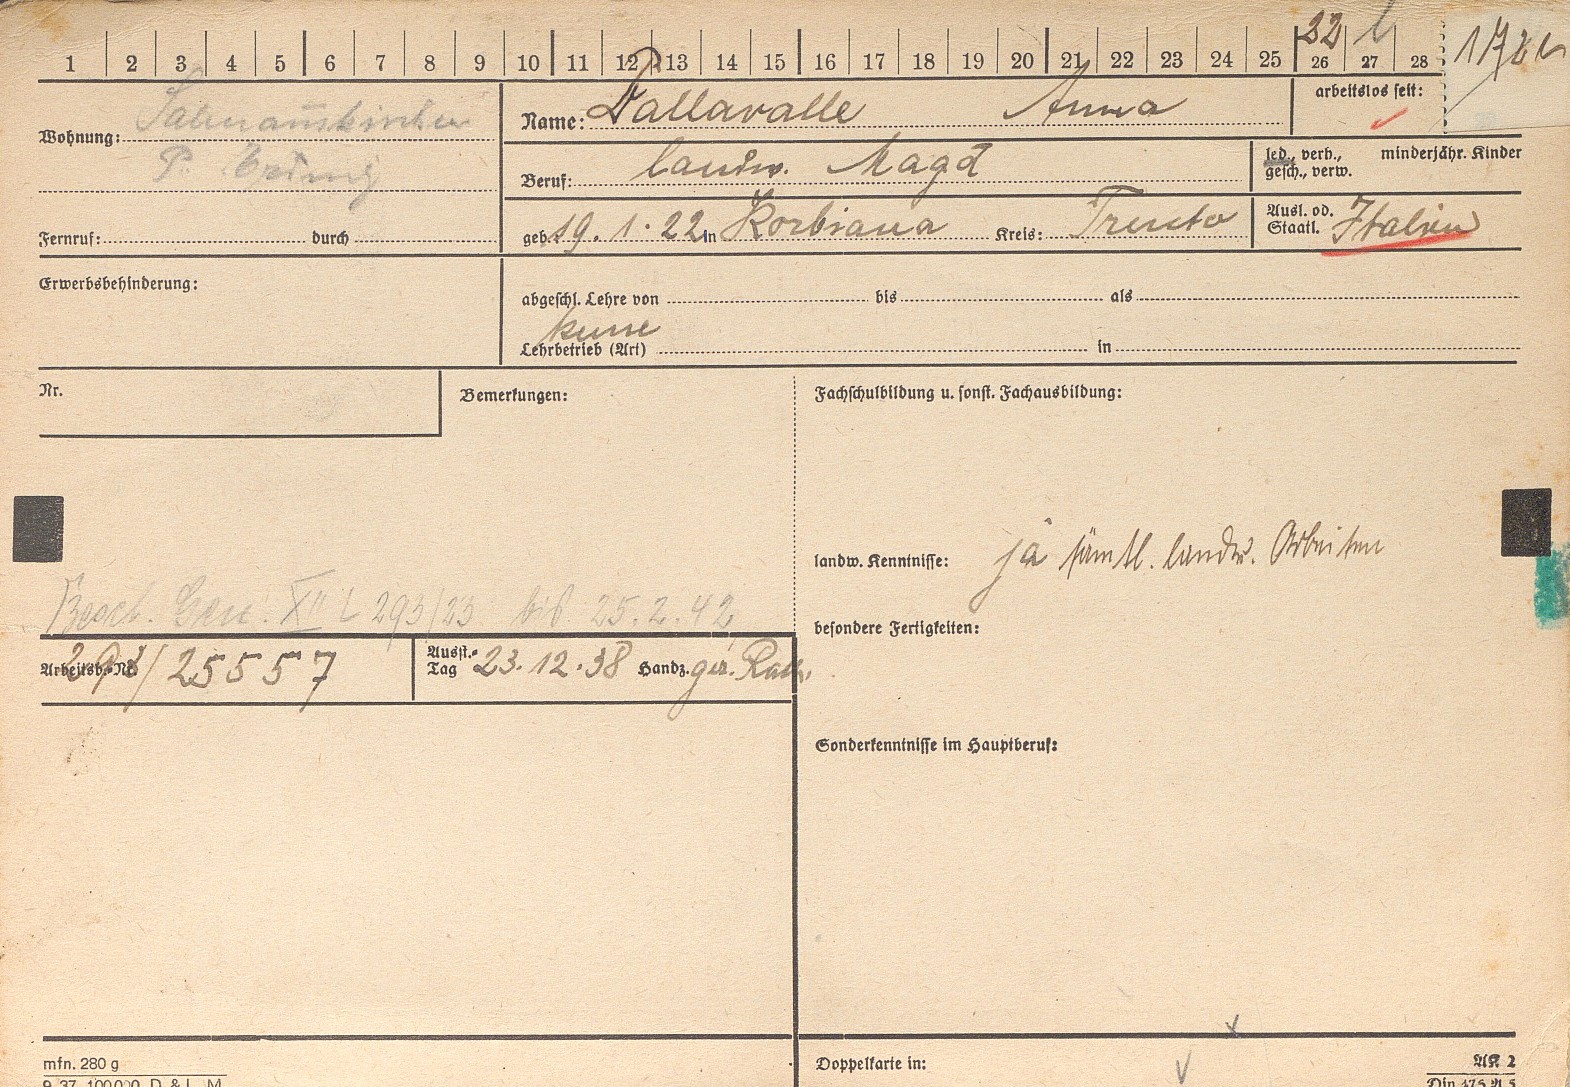 22
1 2 3 4 5 6 7 8 9 10 11 12 13 14 15 16 17 18 19 20 21 22 23 24 25 26 27 28
Wohnung: Salmannskirchen
P. Erding
Name: Dallavalle Anna
arbeitslos seit:
Beruf: landw. Magd
led., verh., minderjähr. Kinder
gesch., verw.
Fernruf: durch
geb. 19. 1. 22 in Korbiana Kreis: Trento
Ausl. od. Staatl. Italien
Erwerbsbehinderung:
abgeschl. Lehre von bis als
keine
Lehrbetrieb (Art) in
Nr.
Bemerkungen:
Fachschulbildung u. sonst. Fachausbildung:
landw. Kenntnisse: ja sämtl. landw. Arbeiten
Besch. Gen. XII L 293/23 bis 25.2.42
besondere Fertigkeiten:
Arbeitsb.-Nr. 293/25557
Ausst.-Tag 23.12.38 Handz. gez.
Sonderkenntnisse im Hauptberuf:
mfn. 280 g
9. 37. 100000. D. & L. M.
Doppelkarte in:
AK 2
Din 475 A 5